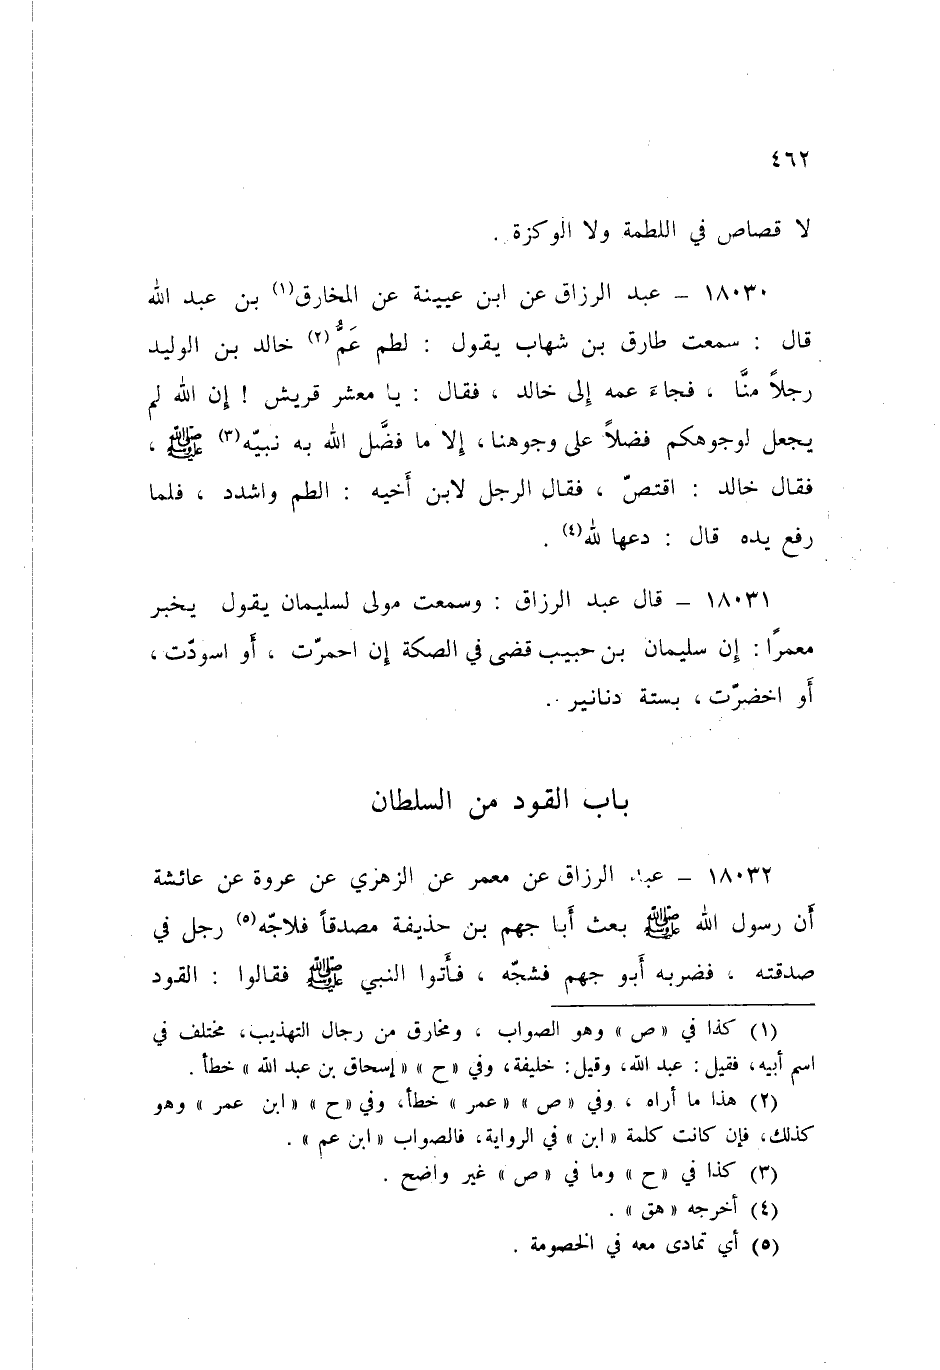 ٤٦٢
لا قصاص في اللطمة ولا الوكزة .
١٨٠٣٠ – عبد الرزاق عن ابن عيينة عن المخارق(١) بن عبد الله
قال : سمعت طارق بن شهاب يقول : لطم عَمُّ(٢) خالد بن الوليد
رجلاً منَّا ، فجاءَ عمه إلى خالد ، فقال : يا معشر قريش ! إن الله لم
يجعل لوجوهكم فضلاً على وجوهنا، إلا ما فضَّل الله به نبيّه(٣) ﷺ ،
فقال خالد : اقتصّ ، فقال الرجل لابن أخيه : الطم واشدد ، فلما
رفع يده قال : دعها لله(٤) .
١٨٠٣١ – قال عبد الرزاق : وسمعت مولى لسليمان يقول يخبر
معمرًا : إن سليمان بن حبيب قضى في الصكة إن احمرّت ، أو اسودّت ،
أو اخضرّت ، بستة دنانير .
باب القود من السلطان
١٨٠٣٢ – عبد الرزاق عن معمر عن الزهري عن عروة عن عائشة
أن رسول الله ﷺ بعث أبا جهم بن حذيفة مصدقاً فلاجّه(٥) رجل في
صدقته ، فضربه أبو جهم فشجّه ، فأتوا النبي ﷺ فقالوا : القود
(١) كذا في « ص » وهو الصواب ، ومخارق من رجال التهذيب، مختلف في
اسم أبيه، فقيل : عبد الله، وقيل: خليفة، وفي « ح » « إسحاق بن عبد الله » خطأ .
(٢) هذا ما أراه ، وفي « ص » « عمر » خطأ، وفي « ح » « ابن عمر » وهو
كذلك، فإن كانت كلمة « ابن » في الرواية، فالصواب « ابن عم » .
(٣) كذا في « ح » وما في « ص » غير واضح .
(٤) أخرجه « هق » .
(٥) أي تمادى معه في الخصومة .